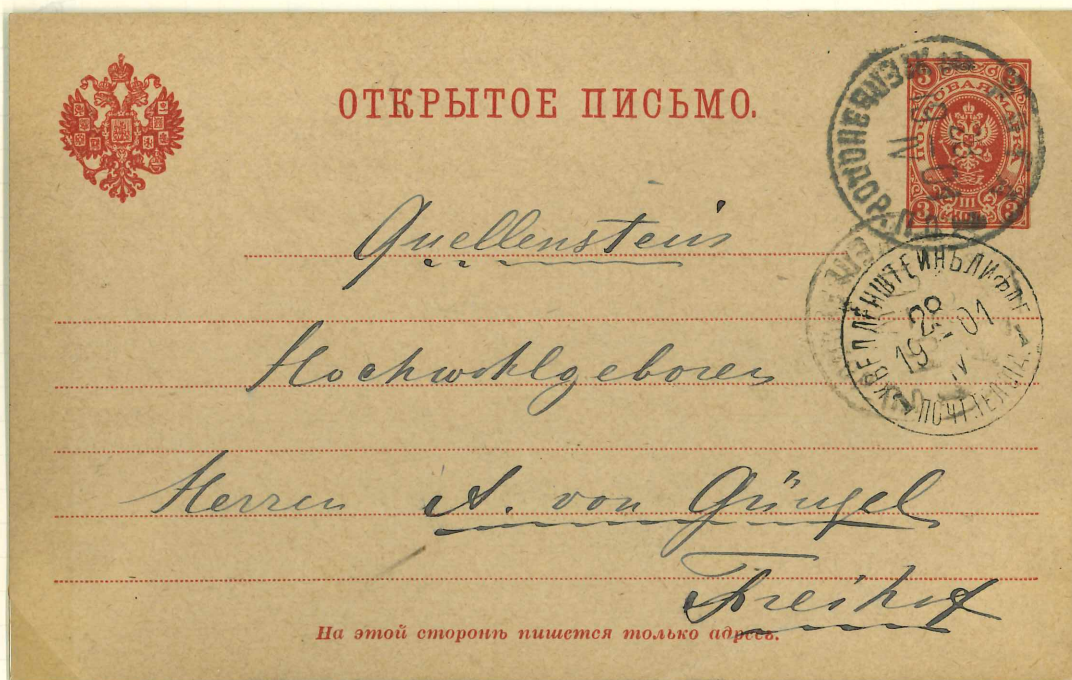 ОТКРЫТОЕ ПИСЬМО.
3 3
ПОЧТОВАЯ МАРКА
3 3
Quellenstein
КВЕЛЛЕНШТЕЙНЪ ЛИФЛ.Г.
28
19 01
IV
ПОЧТ. ТЕЛ. ОТД.
Hochwohlgeboren
Herren A. von Güngel
Freihof
На этой сторонѣ пишется только адресъ.